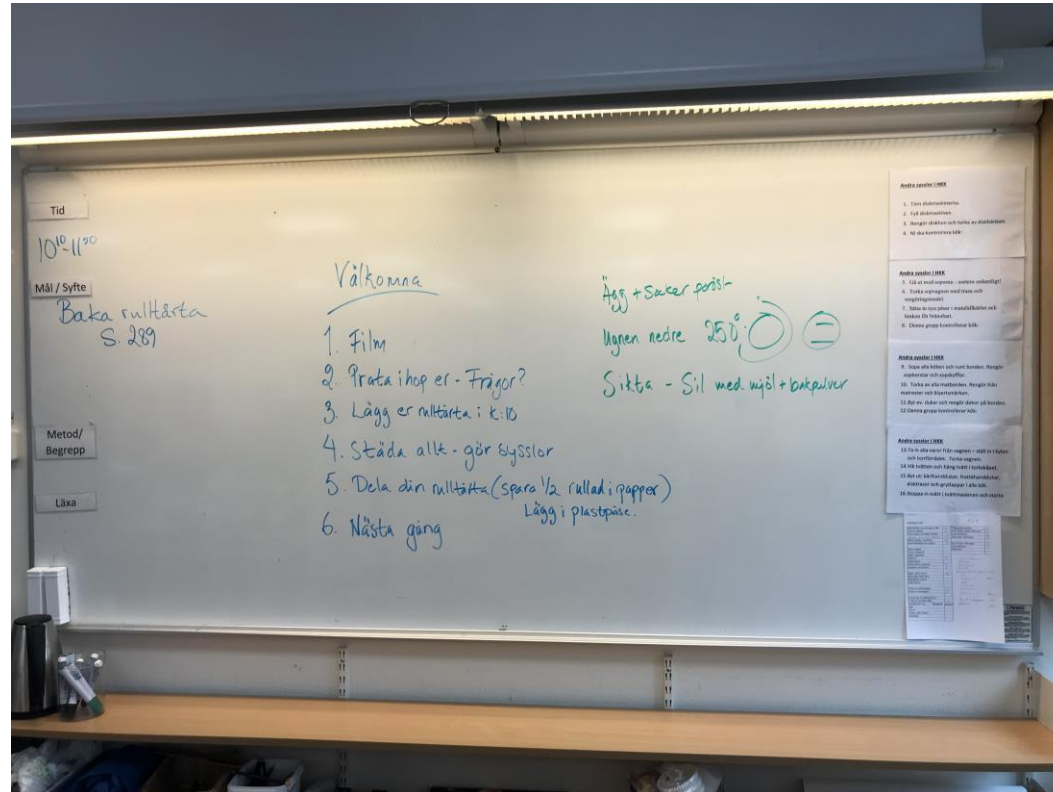 Tid
10¹⁰-11⁵⁰
Mål / Syfte
Baka rulltårta
S. 289
Metod/
Begrepp
Läxa
Välkomna
1. Film
2. Prata ihop er - Frågor?
3. Lägg er rulltårta i k:10
4. Städa allt - gör sysslor
5. Dela din rulltårta (spara 1/2 rullad i papper)
Lägg i plastpåse.
6. Nästa gång
Ägg + Socker poröst
Ugnen nedre 250°
Sikta - Sil med mjöl + bakpulver
Andra sysslor i HKK
1. Töm diskmaskinerna.
2. Fyll diskmaskinen.
3. Rengör diskhon och torka av diskbänken
4. Ni ska kontrollera kök:
Andra sysslor i HKK
5. Gå ut med soporna – sortera ordentligt!
6. Torka sopvagnen med trasa och
rengöringsmedel.
7. Sätta in nya påsar i
8. Denna grupp kontrollerar kök:
Andra sysslor i HKK
9. Sopa alla köken och runt borden. Rengör
sopborstar och sopskyfflar.
10. Torka av alla matborden. Rengör från
matrester och blyertsmärken.
11. Byt ev. dukar och rengör dukar på borden.
12. Denna grupp kontrollerar kök:
Andra sysslor i HKK
13. Ta in alla varor från vagnen – ställ in i kylen
och torrförrådet. Torka vagnen.
14. Vik tvätten och häng tvätt i torkskåpet.
15. Byt ut: kärlhanddukar, frottéhanddukar,
disktrasor och grytlappar i alla kök.
16. Stoppa in tvätt i tvättmaskinen och starta